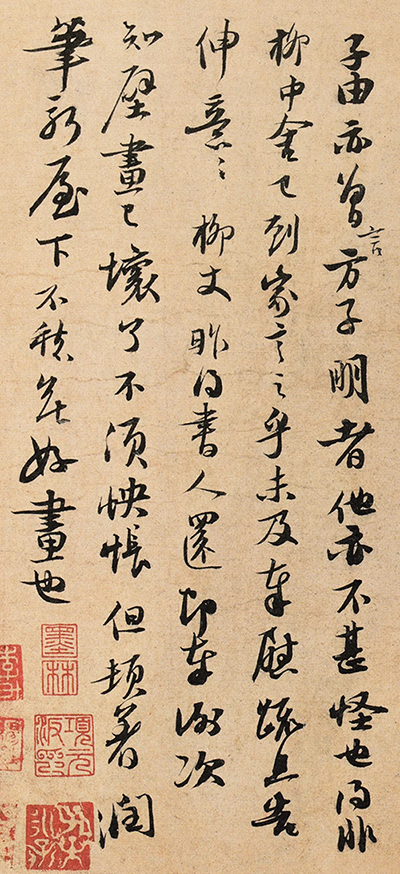 子由亦曾言方子明者他亦不甚怪也得非
柳中舍已到家言之乎未及奉慰疏且告
伸意〻柳丈昨得書人還即奉謝次
知壁畫已壞了不須怏悵但頓著潤
筆新屋下不愁無好畫也
墨林
項元汴印